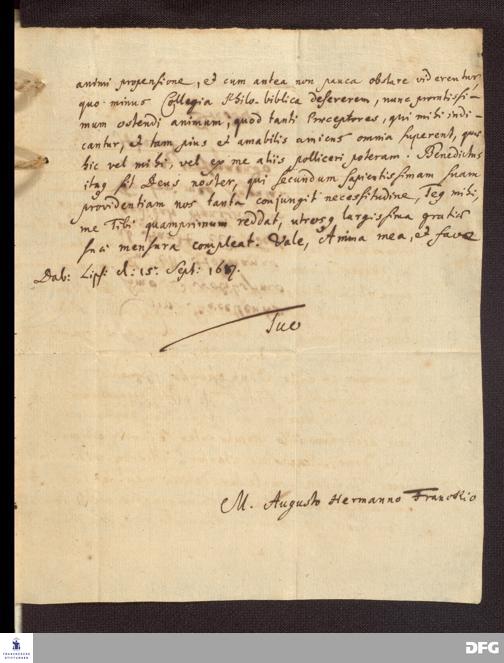 animi propensione, et cum antea non pauca obstare viderentur,
quo minus Collegia Philo-biblica desererem, nunc promtissi-
mum ostendi animum, quod tanti Praeceptores, qui mihi indi-
cantur, et tam pius et amabilis amicus omnia superent, quae
hic vel mihi, vel ex me aliis polliceri poteram. Benedictus
itaq sit Deus noster, qui secundum sapientissimam suam
providentiam nos tanta conjungit necessitudine, Teq mihi,
me Tibi quamprimum reddat, utrosq largissima gratiae
suae mensura compleat. Vale, Anima mea, et fave
Dab: Lips: d: 15. Sept: 1687.
Tuo
M. Augusto Hermanno Franckio
FRANCKESCHE
STIFTUNGEN
DFG